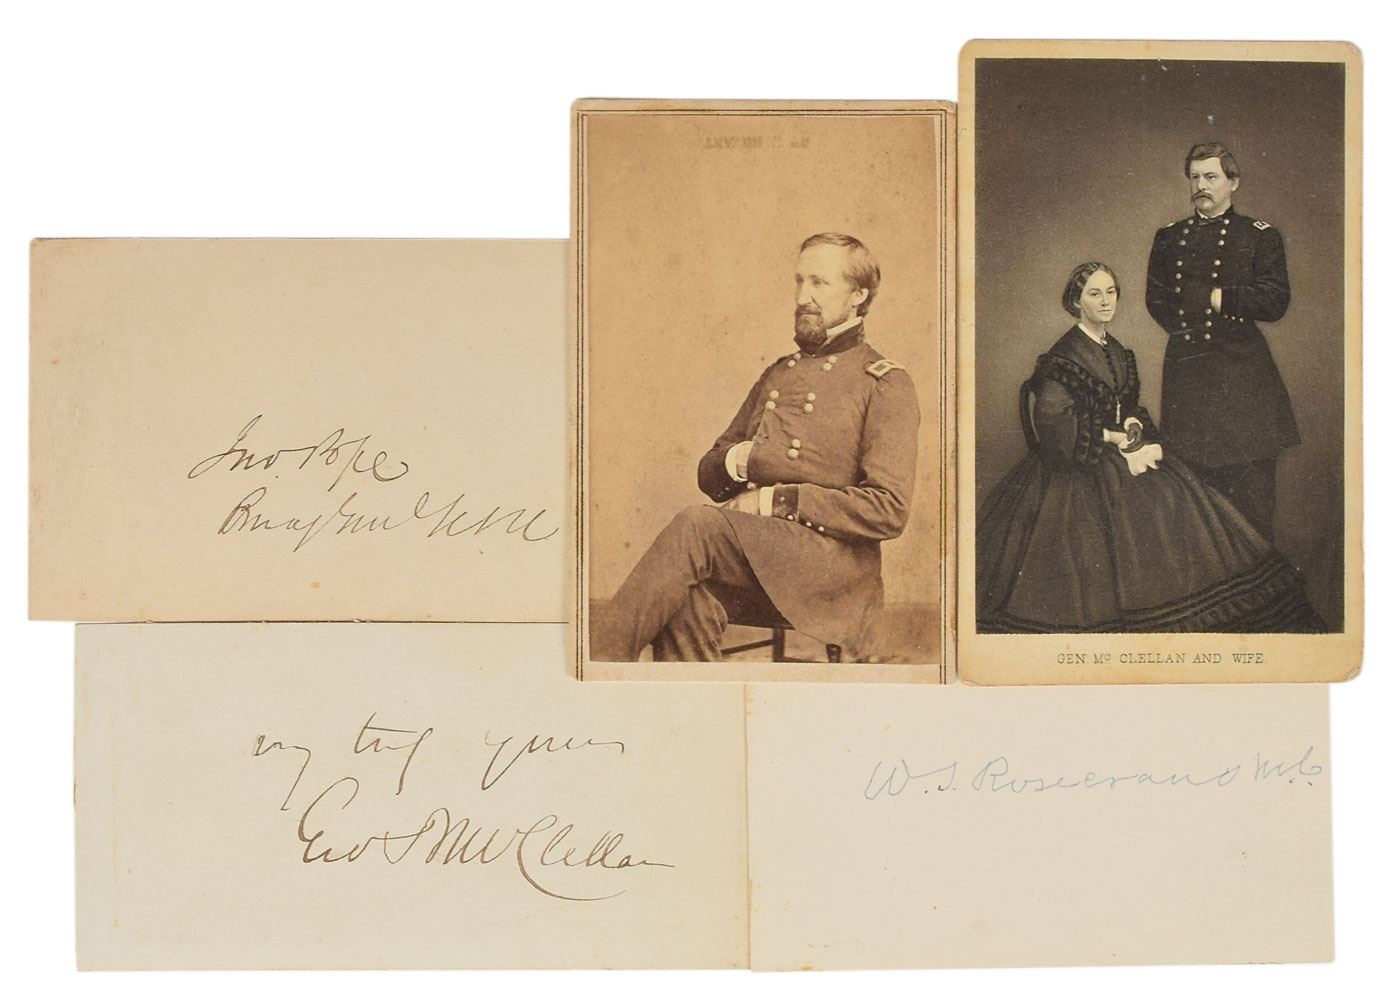 Jno Pope
Brig Genl USA
GEN Mc CLELLAN AND WIFE.
very truly yours
Geo B McClellan
W. S. Rosecrans M.C.